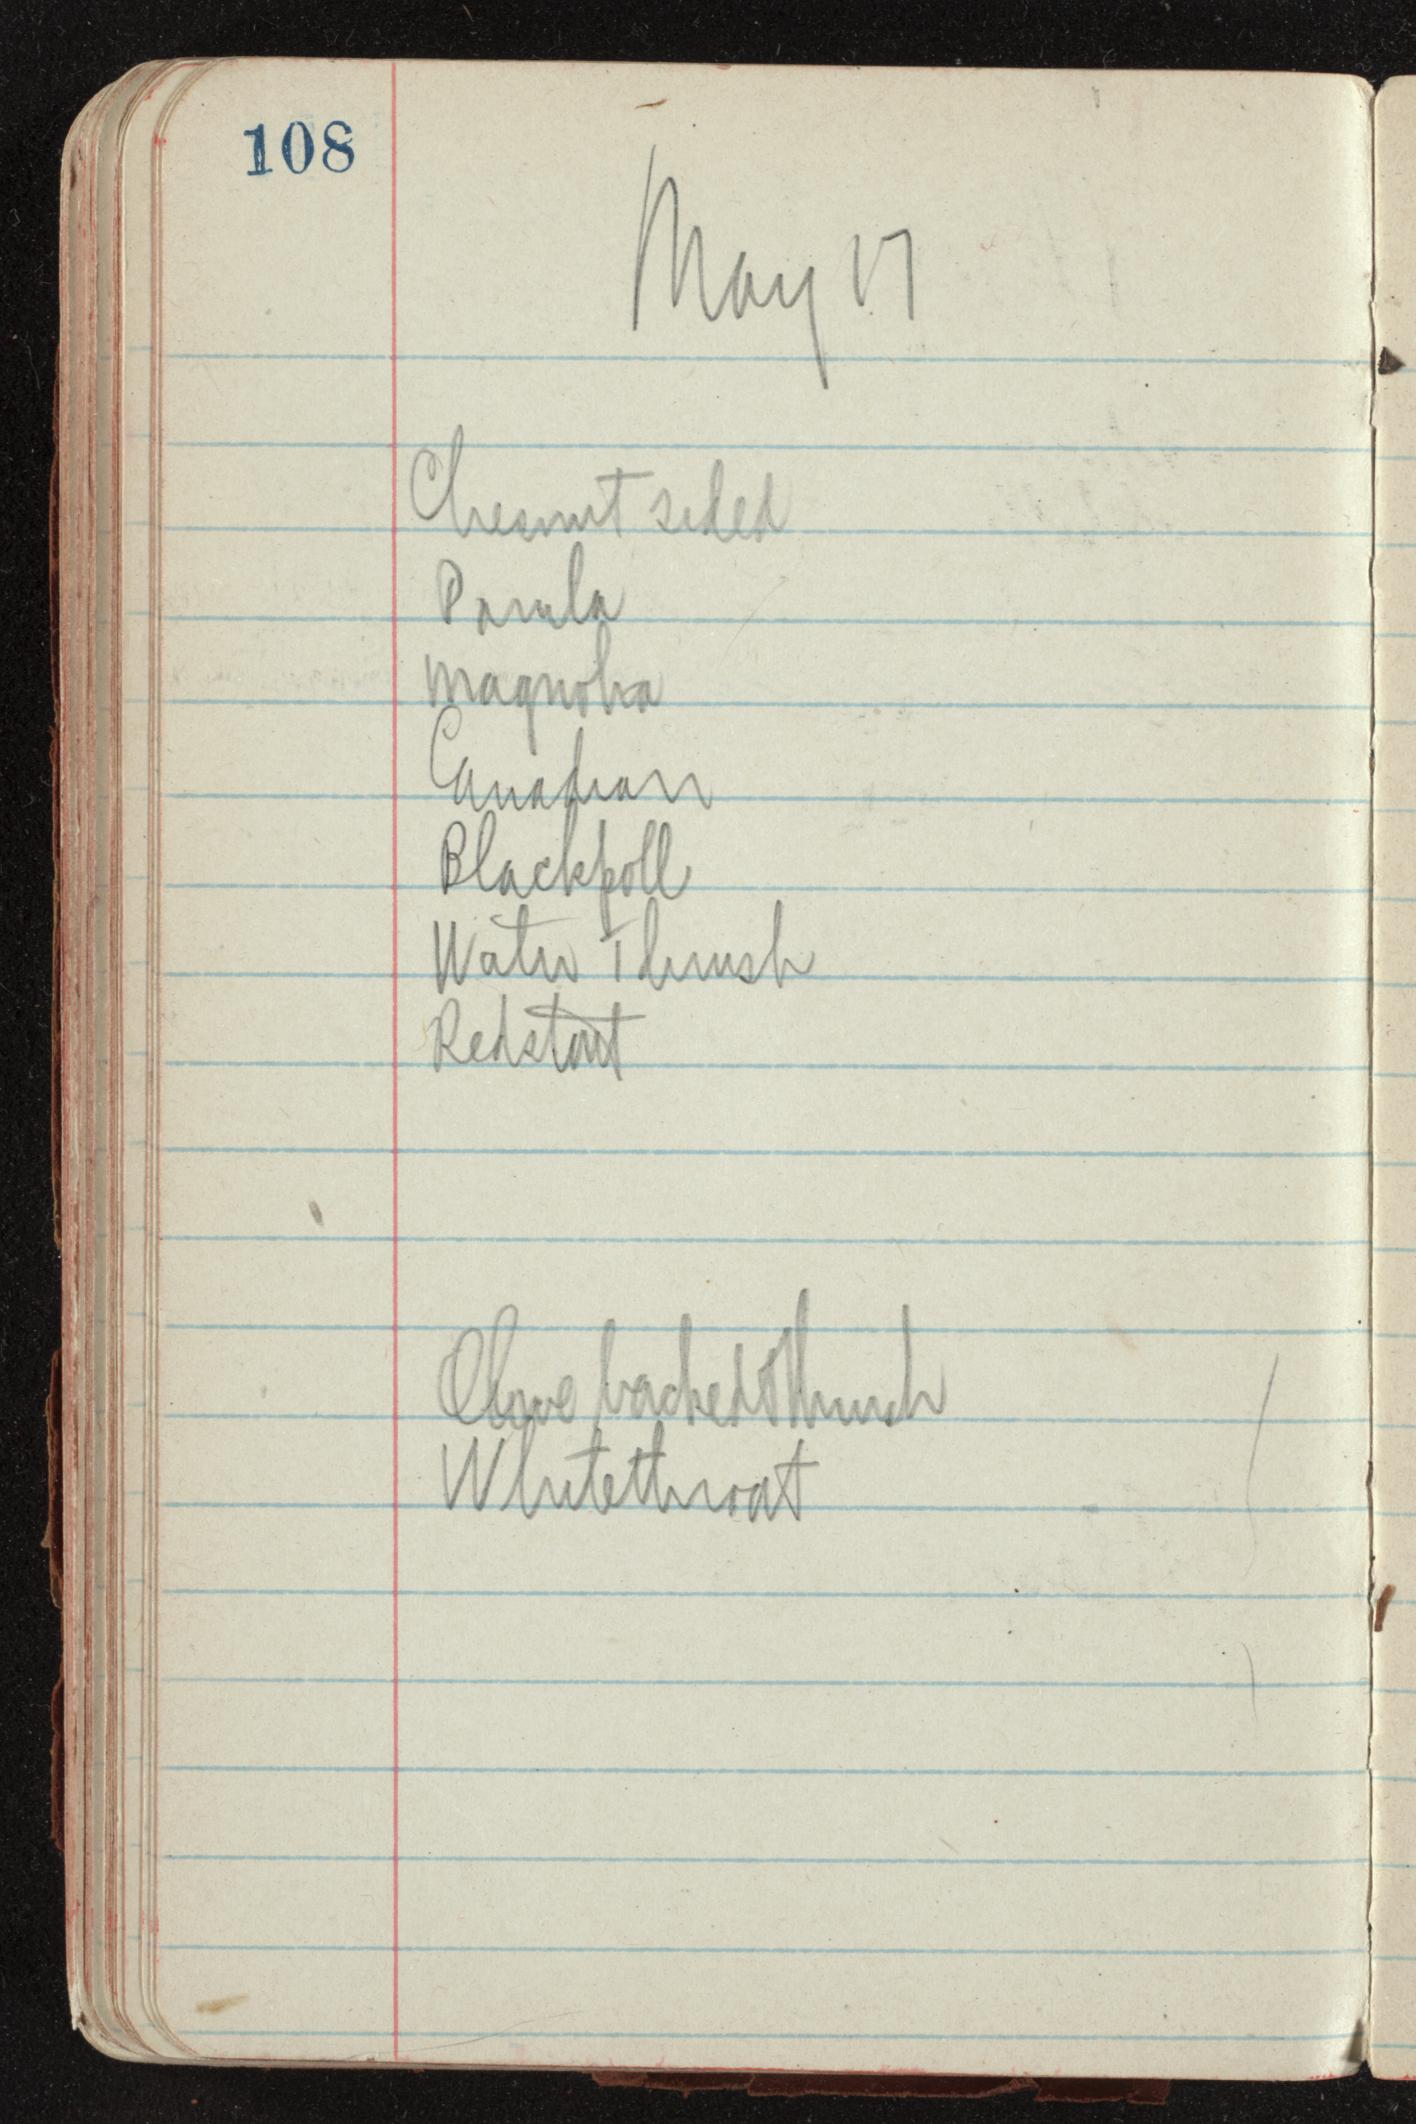 108
May 17
Chesnut sided
Parula
Magnolia
Canadian
Blackpoll
Water Thrush
Redstart
Olive backed Thrush
Whitethroat